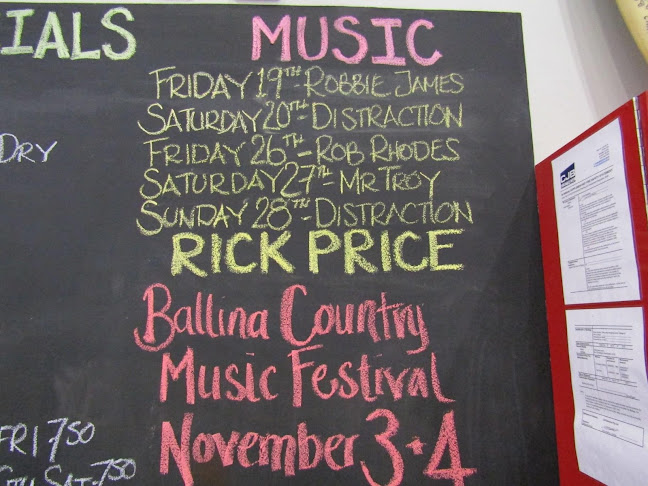 IALS
MUSIC
FRIDAY 19TH - ROBBIE JAMES
SATURDAY 20TH - DISTRACTION
FRIDAY 26TH - ROB RHODES
SATURDAY 27TH - MR TROY
SUNDAY 28TH - DISTRACTION
RICK PRICE
Ballina Country
Music Festival
November 3+4
DRY
FRI 750
SAT-750
CJB